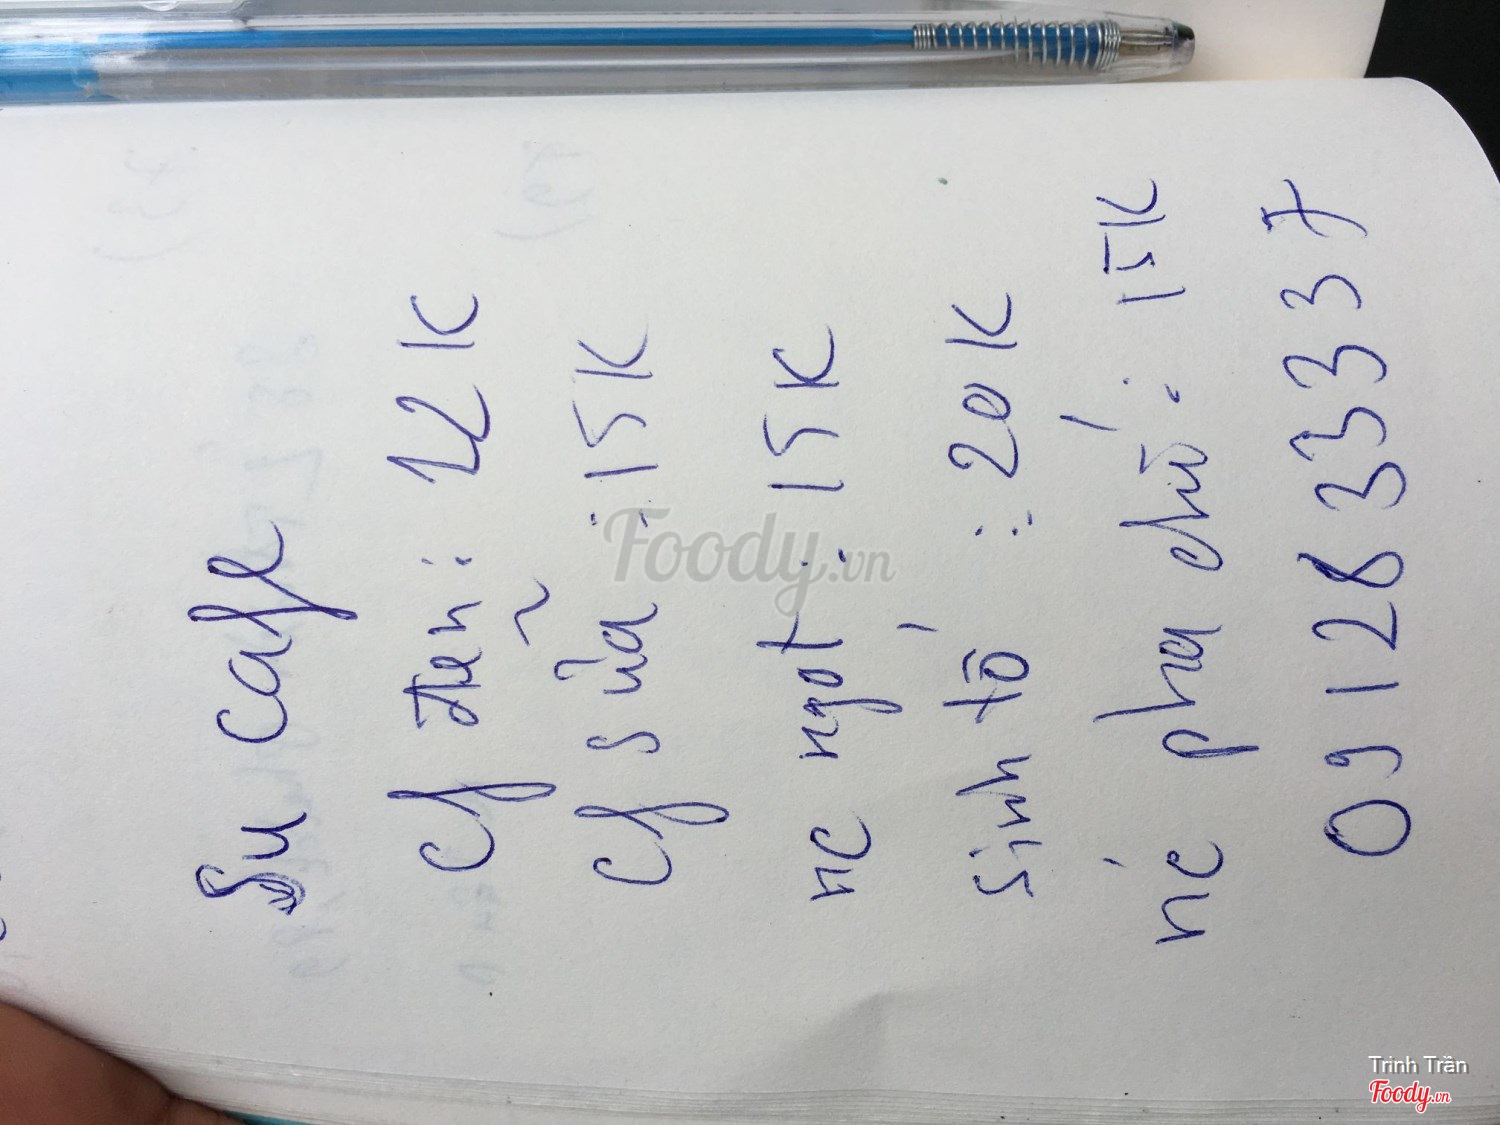 Su Caffe
Cf đen: 12K
Cf sữa: 15K
nc ngọt: 15K
Sinh tố: 20K
nc pha chế: 15K
0912833337
Foody.vn
Trinh Trần
Foody.vn